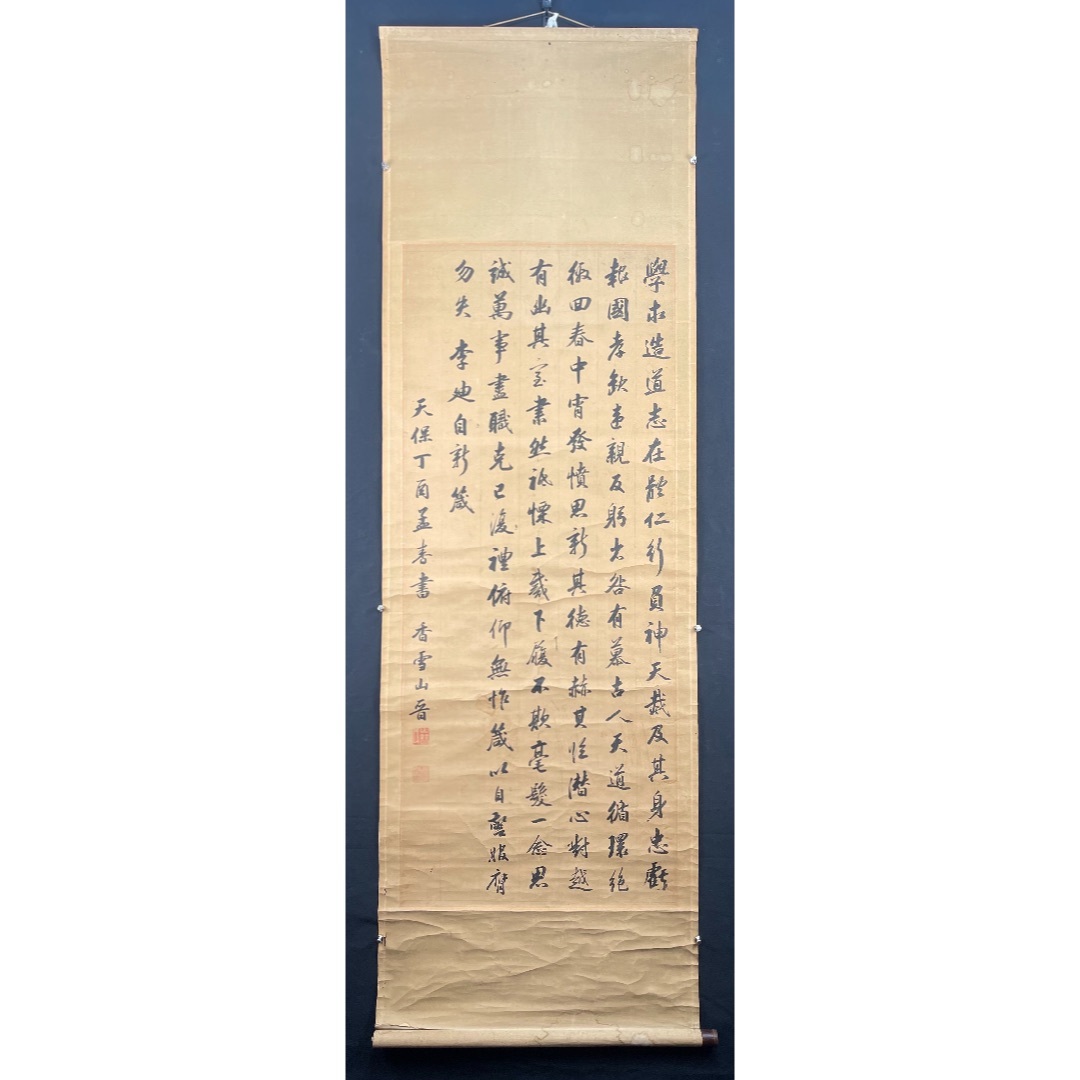 學求造道志在體仁行員神天烖及其身忠虧
報國孝歉事親反躬省咎有慕古人天道循環絶
極回春中宵發憤思新其德有赫其臨潛心對越
有幽其室肅然祗慄上戴下履不欺毫髮一念思
誠萬事盡職克己復禮俯仰無怍箴以自警服膺
勿失 李迪自新箴
天保丁酉孟春書 香雪山晋